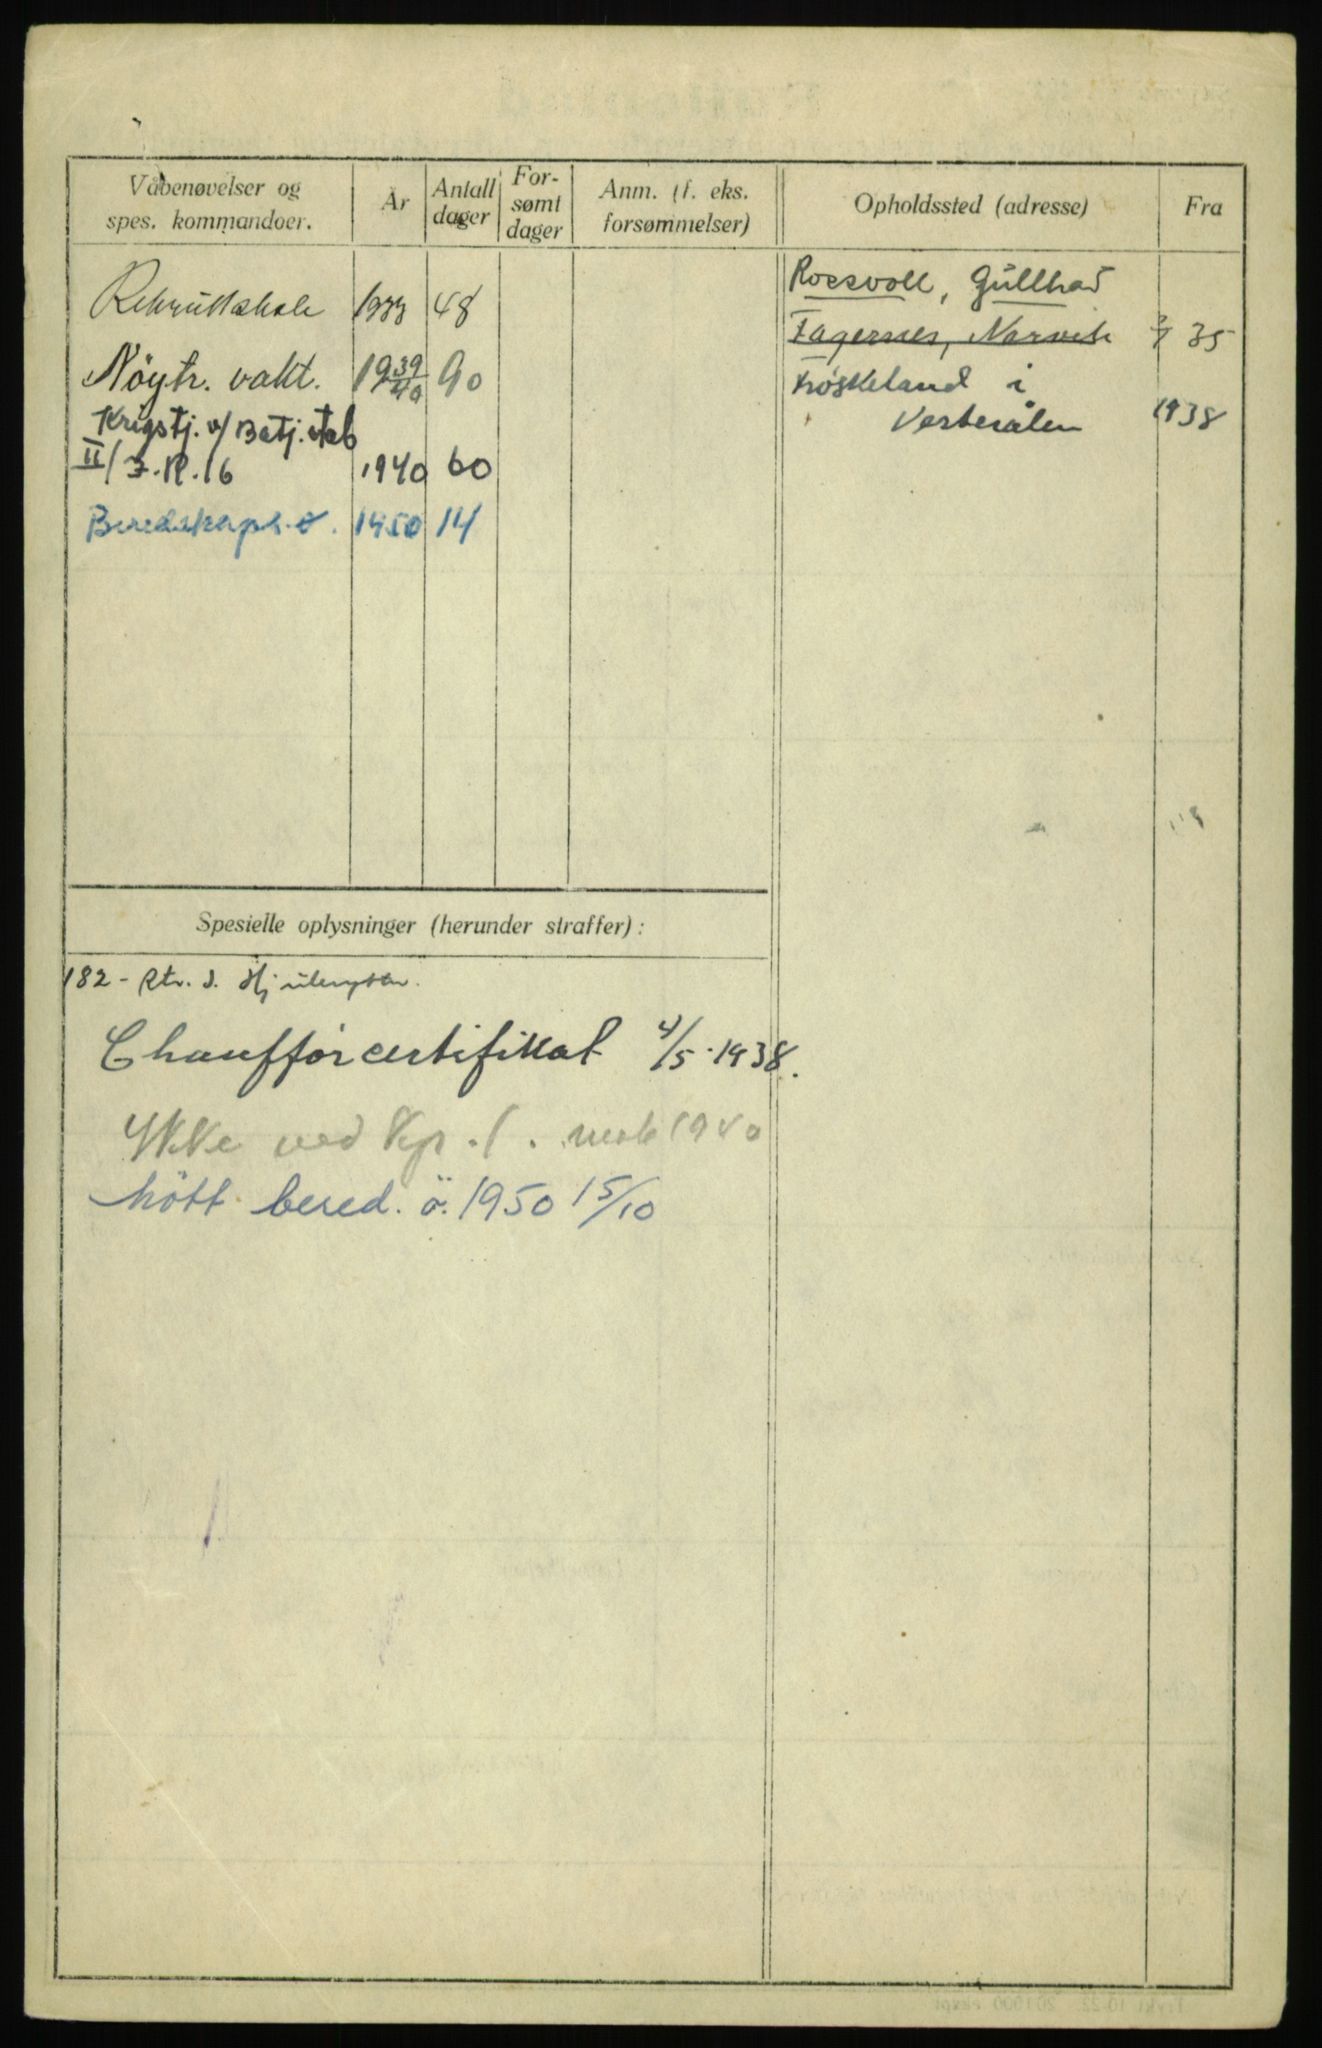 Våbenøvelser og
spes. kommandoer.
År
Antall
dager
For-
sømt
dager
Anm. (f. eks.
forsømmelser)
Opholdssted (adresse)
Fra
Rekruttskole 1933 48
Nöytr. vakt. 1939/40 90
Krigstj. v/ Batj. stab
II/ I.R. 16 1940 60
Beredskaps.ø. 1950 14
Rossvoll, Gullhav
Fagernes, Narvik 35
Frøskeland i
Vesterålen 1938
Spesielle oplysninger (herunder straffer) :
182 - Rtr. d.
Chaufförcertifikat 4/5-1938.
Ikke ved Kp. 1. mob 1940
Mött bered. ö. 1950 15/10